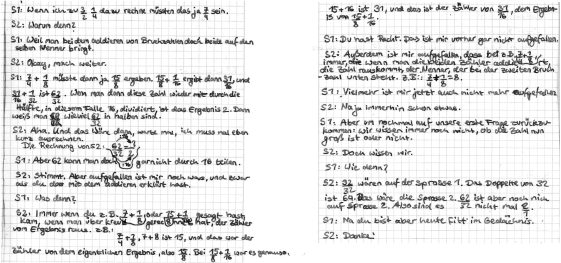 S1: Wenn ich zu 3/2 1/4 dazu rechne müssten das ja 7/4 sein.
S2: Warum denn?
S1: Weil man bei den addieren von Bruchzahlen doch beide auf den
selben Nenner bringt.
S2: Okay, mach weiter.
S1: 7/4 + 1/8 müsste dann ja 15/8 ergeben. 15/8 + 1/16 ergibt dann 31/16, und
31/16 + 1/32 ist 63/32. Wenn man diese Zahl wieder durch die
Hälfte, in diesem Falle 16, dividiert, ist das Ergebnis 2. Dann
weiß man wieviel 62/32 in halben sind.
S2: Aha. Und das wäre dann, warte mal, ich muss mal eben
kurz ausrechnen.
Die Rechnung von S2:
S1: Aber 62 kann man doch gar nicht durch 16 teilen.
S2: Stimmt. Aber aufgefallen ist mir noch was, und zwar
als du das mit dem addieren erklärt hast.
S1: Was denn?
S2: Immer wenn du z.B. 7/4 + 1/8, oder 15/8 + 1/16 gesagt hast
kam, wenn man über kreuz gerechnet hat, der Zähler
vom Ergebnis raus. z.B.:
7/4 + 1/8, 7+8 ist 15, und das war der
Zähler von dem eigentlichen Ergebnis, also 15/8. Bei 15/8 + 1/16 war es genauso.
15+16 ist 31, und das ist der Zähler von 31/16, dem Ergeb-
nis von 15/8 + 1/16.
S1: Du hast Recht. Das ist mir vorher gar nicht aufgefallen.
S2: Außerdem ist mir aufgefallen, dass bei z.B. 7/4 + 1/8
immer, die wenn man die beiden Zähler addiert,
die Zahl rauskommt, der Nenner, der bei der zweiten Bruch-
zahl unten steht. z.B.: 7/4 + 1/8 = 8.
S1: Vielmehr ist mir jetzt auch nicht mehr aufgefallen
S2: Naja immerhin schon etwas.
S1: Aber um nochmal auf unsere erste Frage zurückzu-
kommen: wir wissen immer noch nicht, ob die Zahl nun
groß ist oder nicht.
S2: Doch wissen wir.
S1: Wie denn?
S2: 32/32 wären auf der Sprosse 1. Das Doppelte von 32
ist 64. Das wäre die Sprosse 2. 62/32 ist aber noch nicht
auf Sprosse 2. Also sind es 62/32 nicht mal
S1: Na du bist aber heute fitt im Gedächtnis.
S2: Danke!